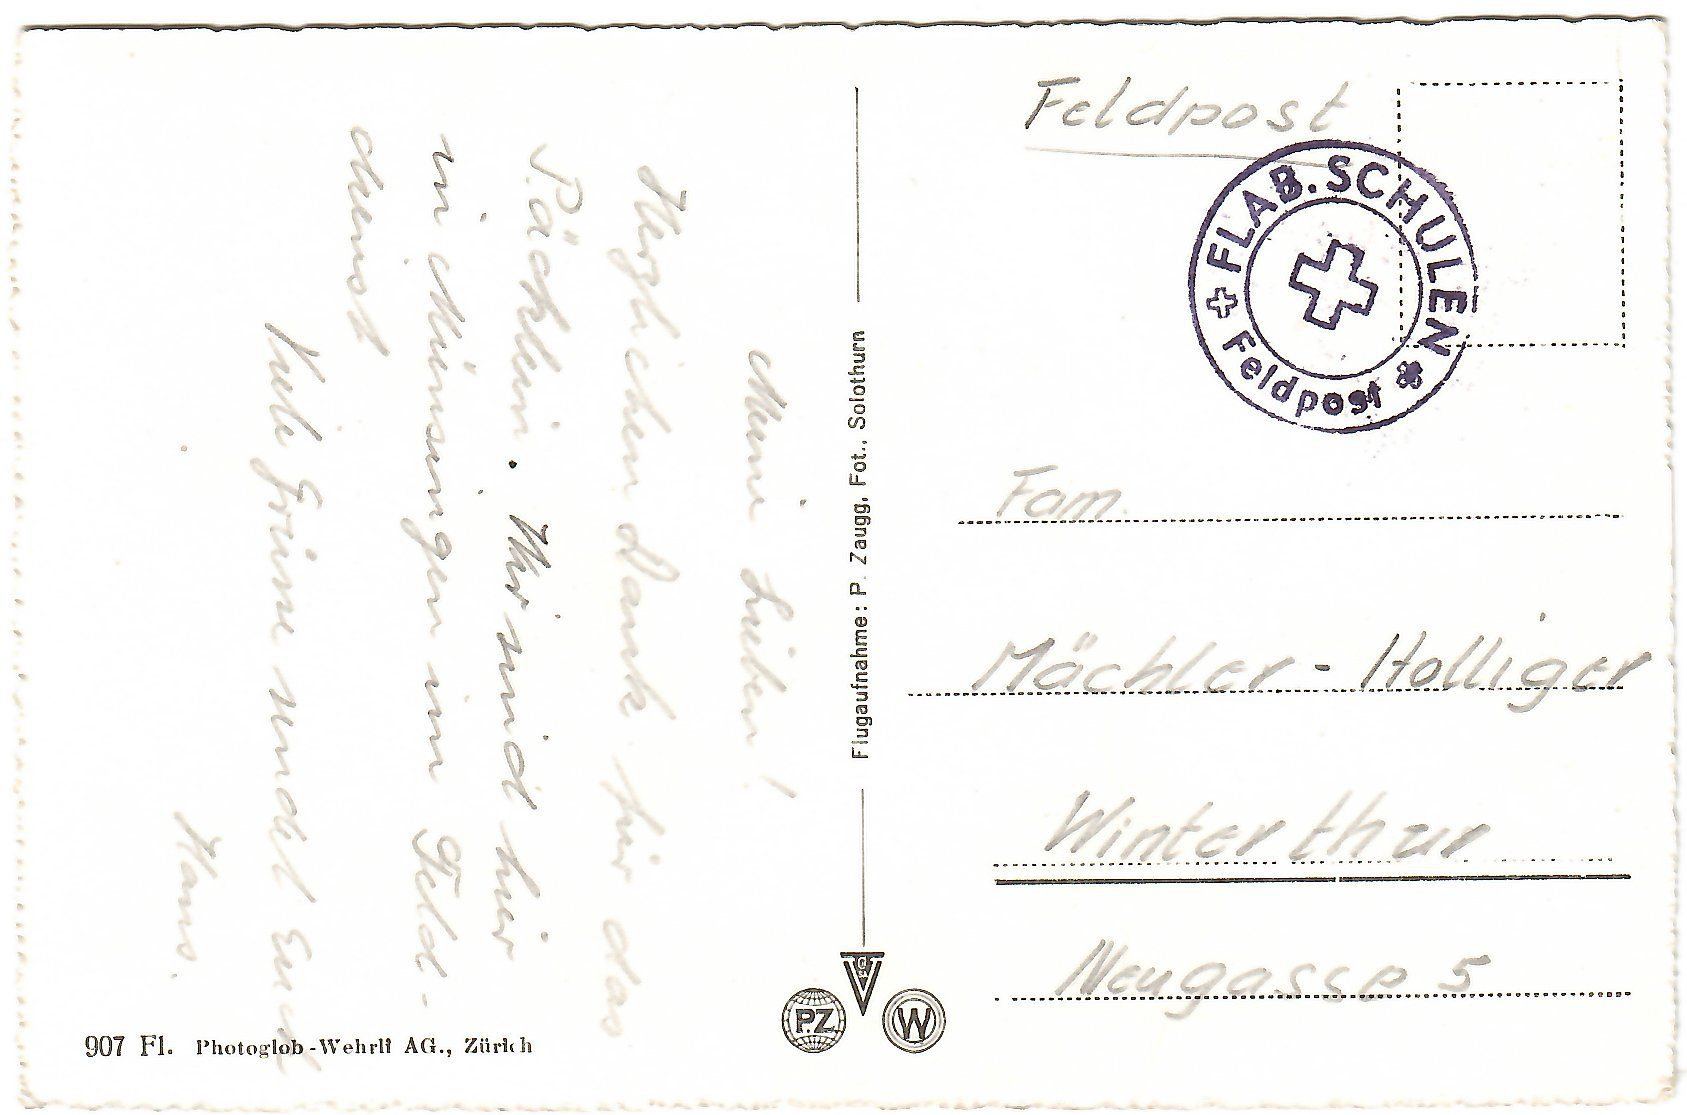 Meine Lieben!
Herzlichen Dank für das
Päcklein. Wir sind hier
in Münsingen im Feld-
dienst
Viele Grüsse sendet Euch
Hans.
907 Fl. Photoglob-Wehrli AG., Zürich
Flugaufnahme: P. Zaugg, Fot., Solothurn
PZ
W
Feldpost
FLAB. SCHULEN
Feldpost
Fam.
Mächler - Holliger
Winterthur
Neugasse 5